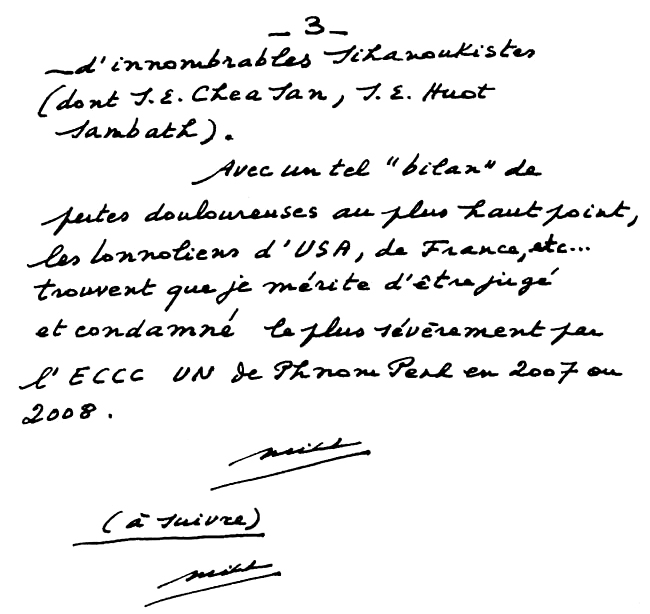 _ 3 _
_ d'innombrables Sihanoukistes
(dont S.E. Chea San, S.E. Huot
Sambath).
Avec un tel "bilan" de
pertes douloureuses au plus haut point,
les lonnoliens d'USA, de France, etc...
trouvent que je mérite d'être jugé
et condamné le plus sévèrement par
l'ECCC UN de Phnom Penh en 2007 ou
2008.
(à suivre)